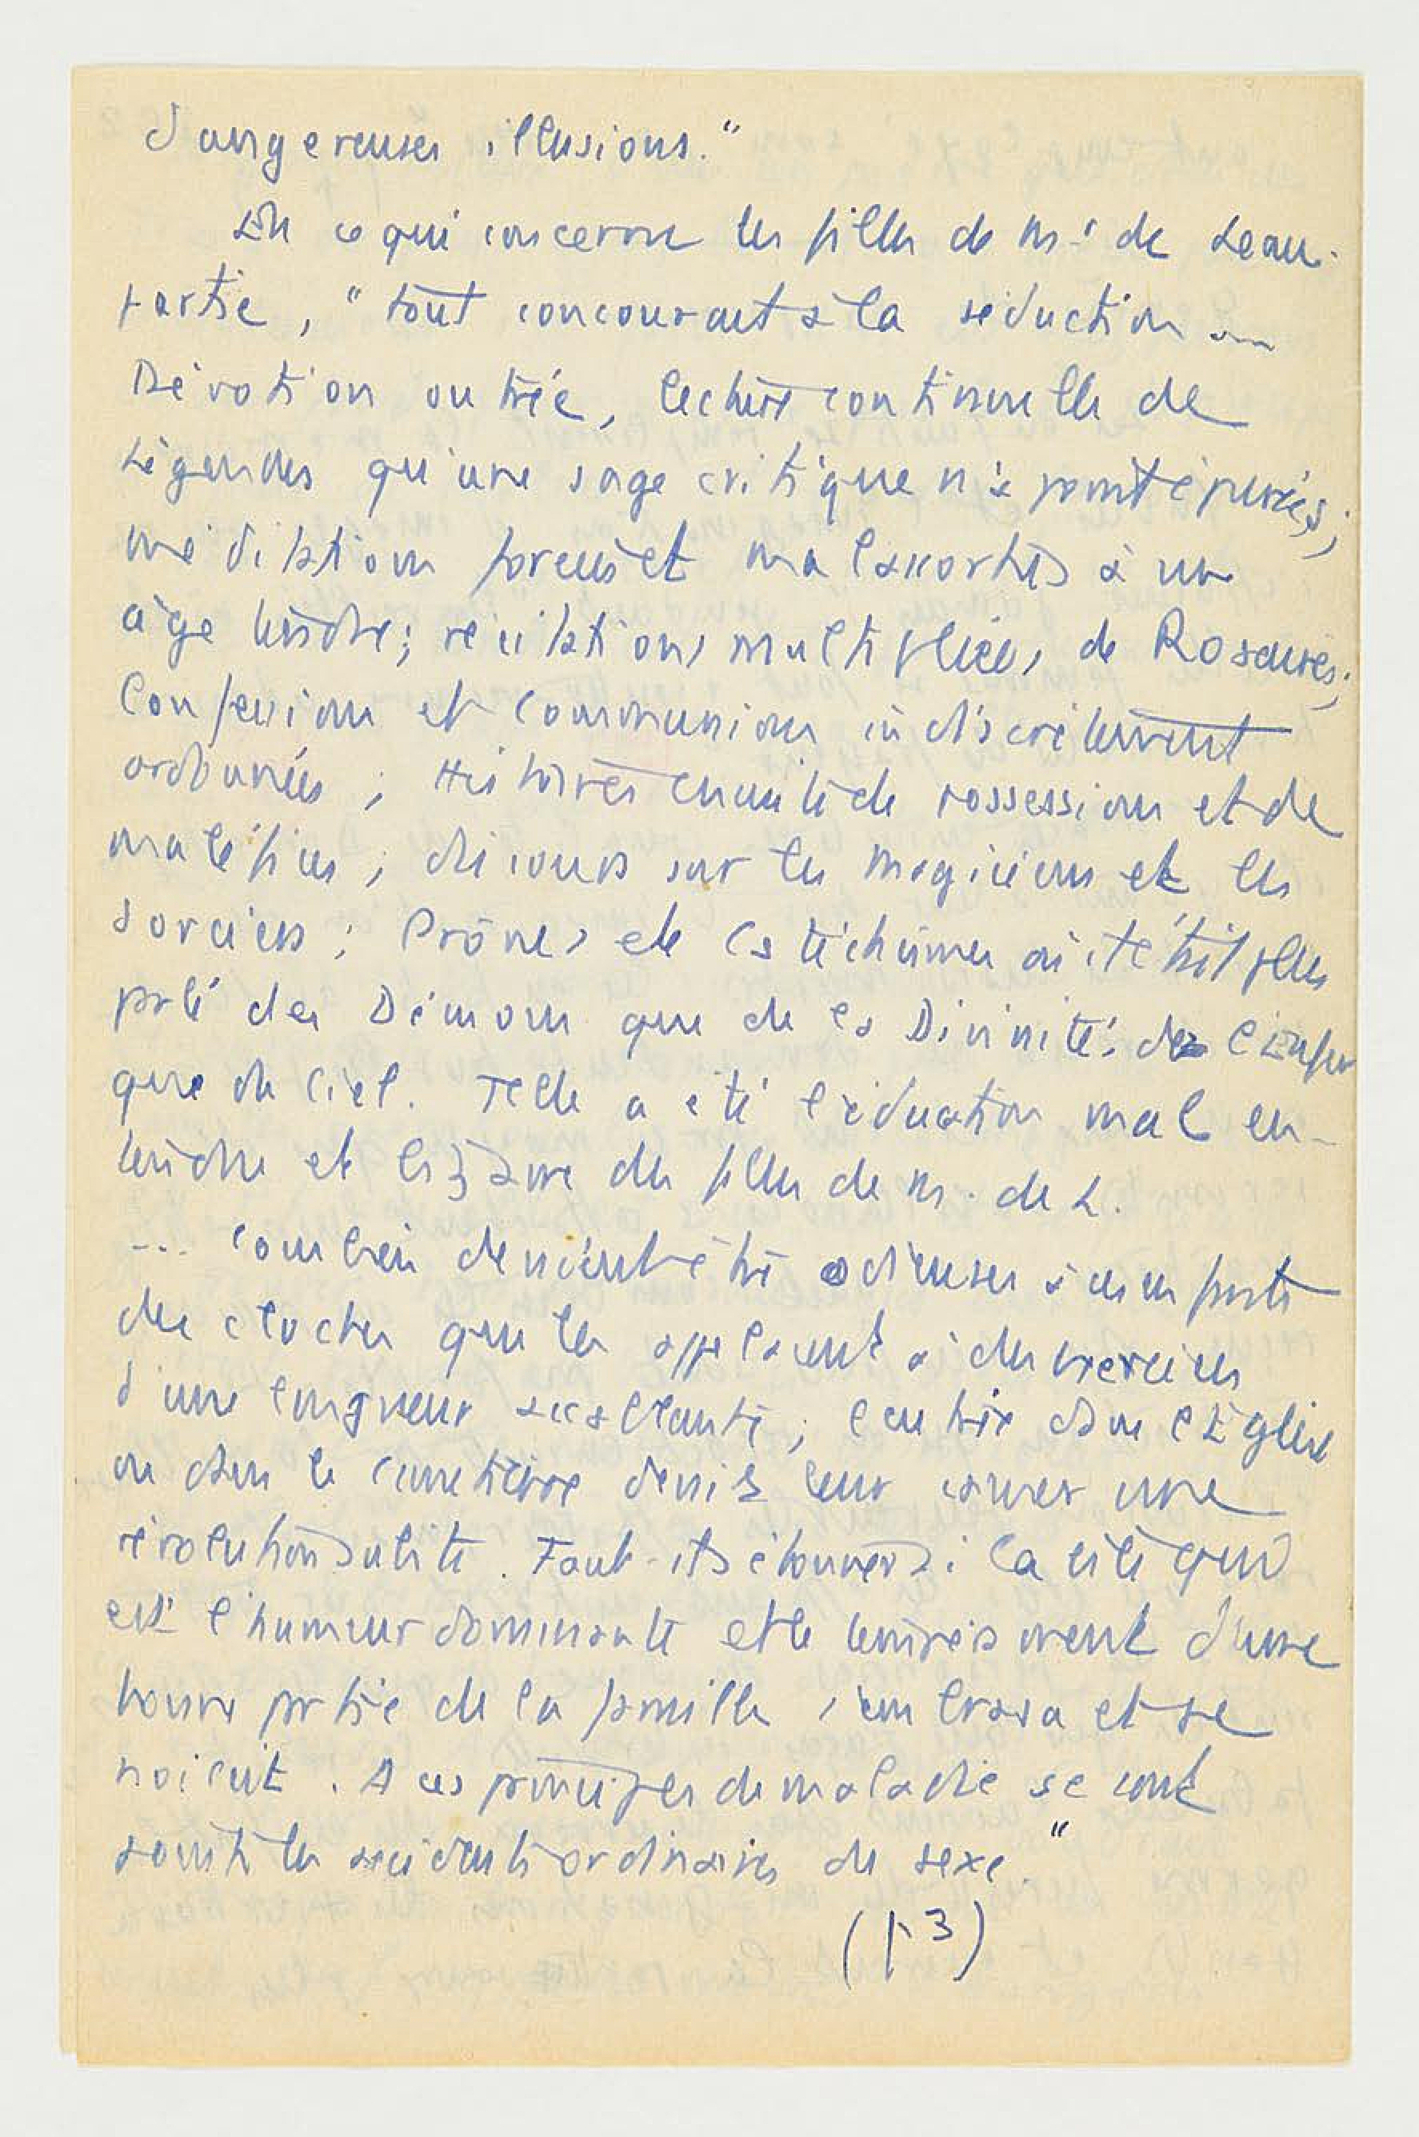 dangereuses illusions."
En ce qui concerne les filles de Mr de Leau-
partie, "tout concourait à la séduction ...
Dévotion outrée, lecture continuelle de
Légendes qu'une sage critique n'a point épurées;
méditations forcées et mal assorties à un
âge tendre; récitations multipliées de Rosaires;
Confessions et Communions indiscrètement
ordonnées; Histoires ensuite de possessions et de
maléfices; discours sur les Magiciens et les
Sorciers; Prônes et Catéchismes où était plus
parlé des Démons que de la Divinité: de l'Enfer
que du Ciel. Telle a été l'éducation mal en-
tendue et bizarre des filles de M. de L.
... Combien devaient être odieuses à ces enfants
des cloches que les appelaient à des exercices
d'une longueur accablante; l'entrée dans l'Eglise
ou dans le cimetière devait leur causer une
révolution subite. Faut-il s'étonner si la bile qui
est l'humeur dominante et le tempérament d'une
bonne partie de la famille s'embrasa et se
noircit. A ces principes de maladie se sont
joints les accidents ordinaires du sexe."
(p 3)